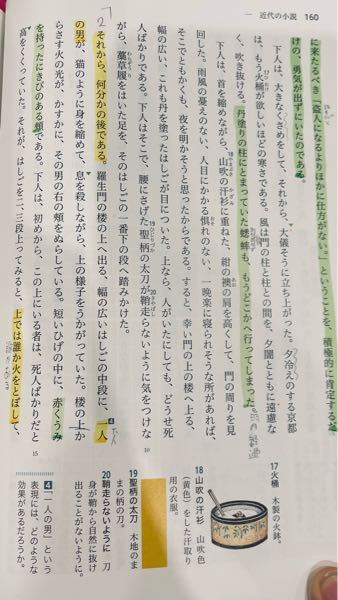 近代の小説 160
に来たるべき「盗人になるよりほかに仕方がない。」ということを、積極的に肯定するだ
けの、勇気が出ずにいたのである。
下人は、大きなくさめをして、それから、大儀そうに立ち上がった。夕冷えのする京都
は、もう火桶が欲しいほどの寒さである。風は門の柱と柱との間を、夕闇とともに遠慮な
く、吹き抜ける。丹塗りの柱にとまっていた蟋蟀も、もうどこかへ行ってしまった。
下人は、首を縮めながら、山吹の汗衫に重ねた、紺の襖の肩を高くして、門の周りを見
回した。雨風の憂えのない、人目にかかる惧れのない、一晩楽に寝られそうな所があれば、
そこでともかくも、夜を明かそうと思ったからである。すると、幸い門の上の楼へ上る、
幅の広い、これも丹を塗ったはしごが目についた。上なら、人がいたにしても、どうせ死
人ばかりである。下人はそこで、腰にさげた聖柄の太刀が鞘走らないように気をつけな
がら、藁草履をはいた足を、そのはしごの一番下の段へ踏みかけた。
それから、何分かの後である。羅生門の楼の上へ出る、幅の広いはしごの中段に、一人
の男が、猫のように身を縮めて、息を殺しながら、上の様子をうかがっていた。楼の上か
らさす火の光が、かすかに、その男の右の頰をぬらしている。短いひげの中に、赤くうみ
を持ったにきびのある頰である。下人は、初めから、この上にいる者は、死人ばかりだと
高をくくっていた。それが、はしごを二、三段上ってみると、上では誰か火をとぼして、
17 火桶 木製の火鉢。
18 山吹の汗衫 山吹色
（黄色）をした汗取り
用の衣服。
19 聖柄の太刀 木地のま
まの柄の刀。
20 鞘走らないように 刀
身が鞘から自然に抜け
出ることがないように。
4 「一人の男」という
表現には、どのような
効果があるだろうか。
10
15